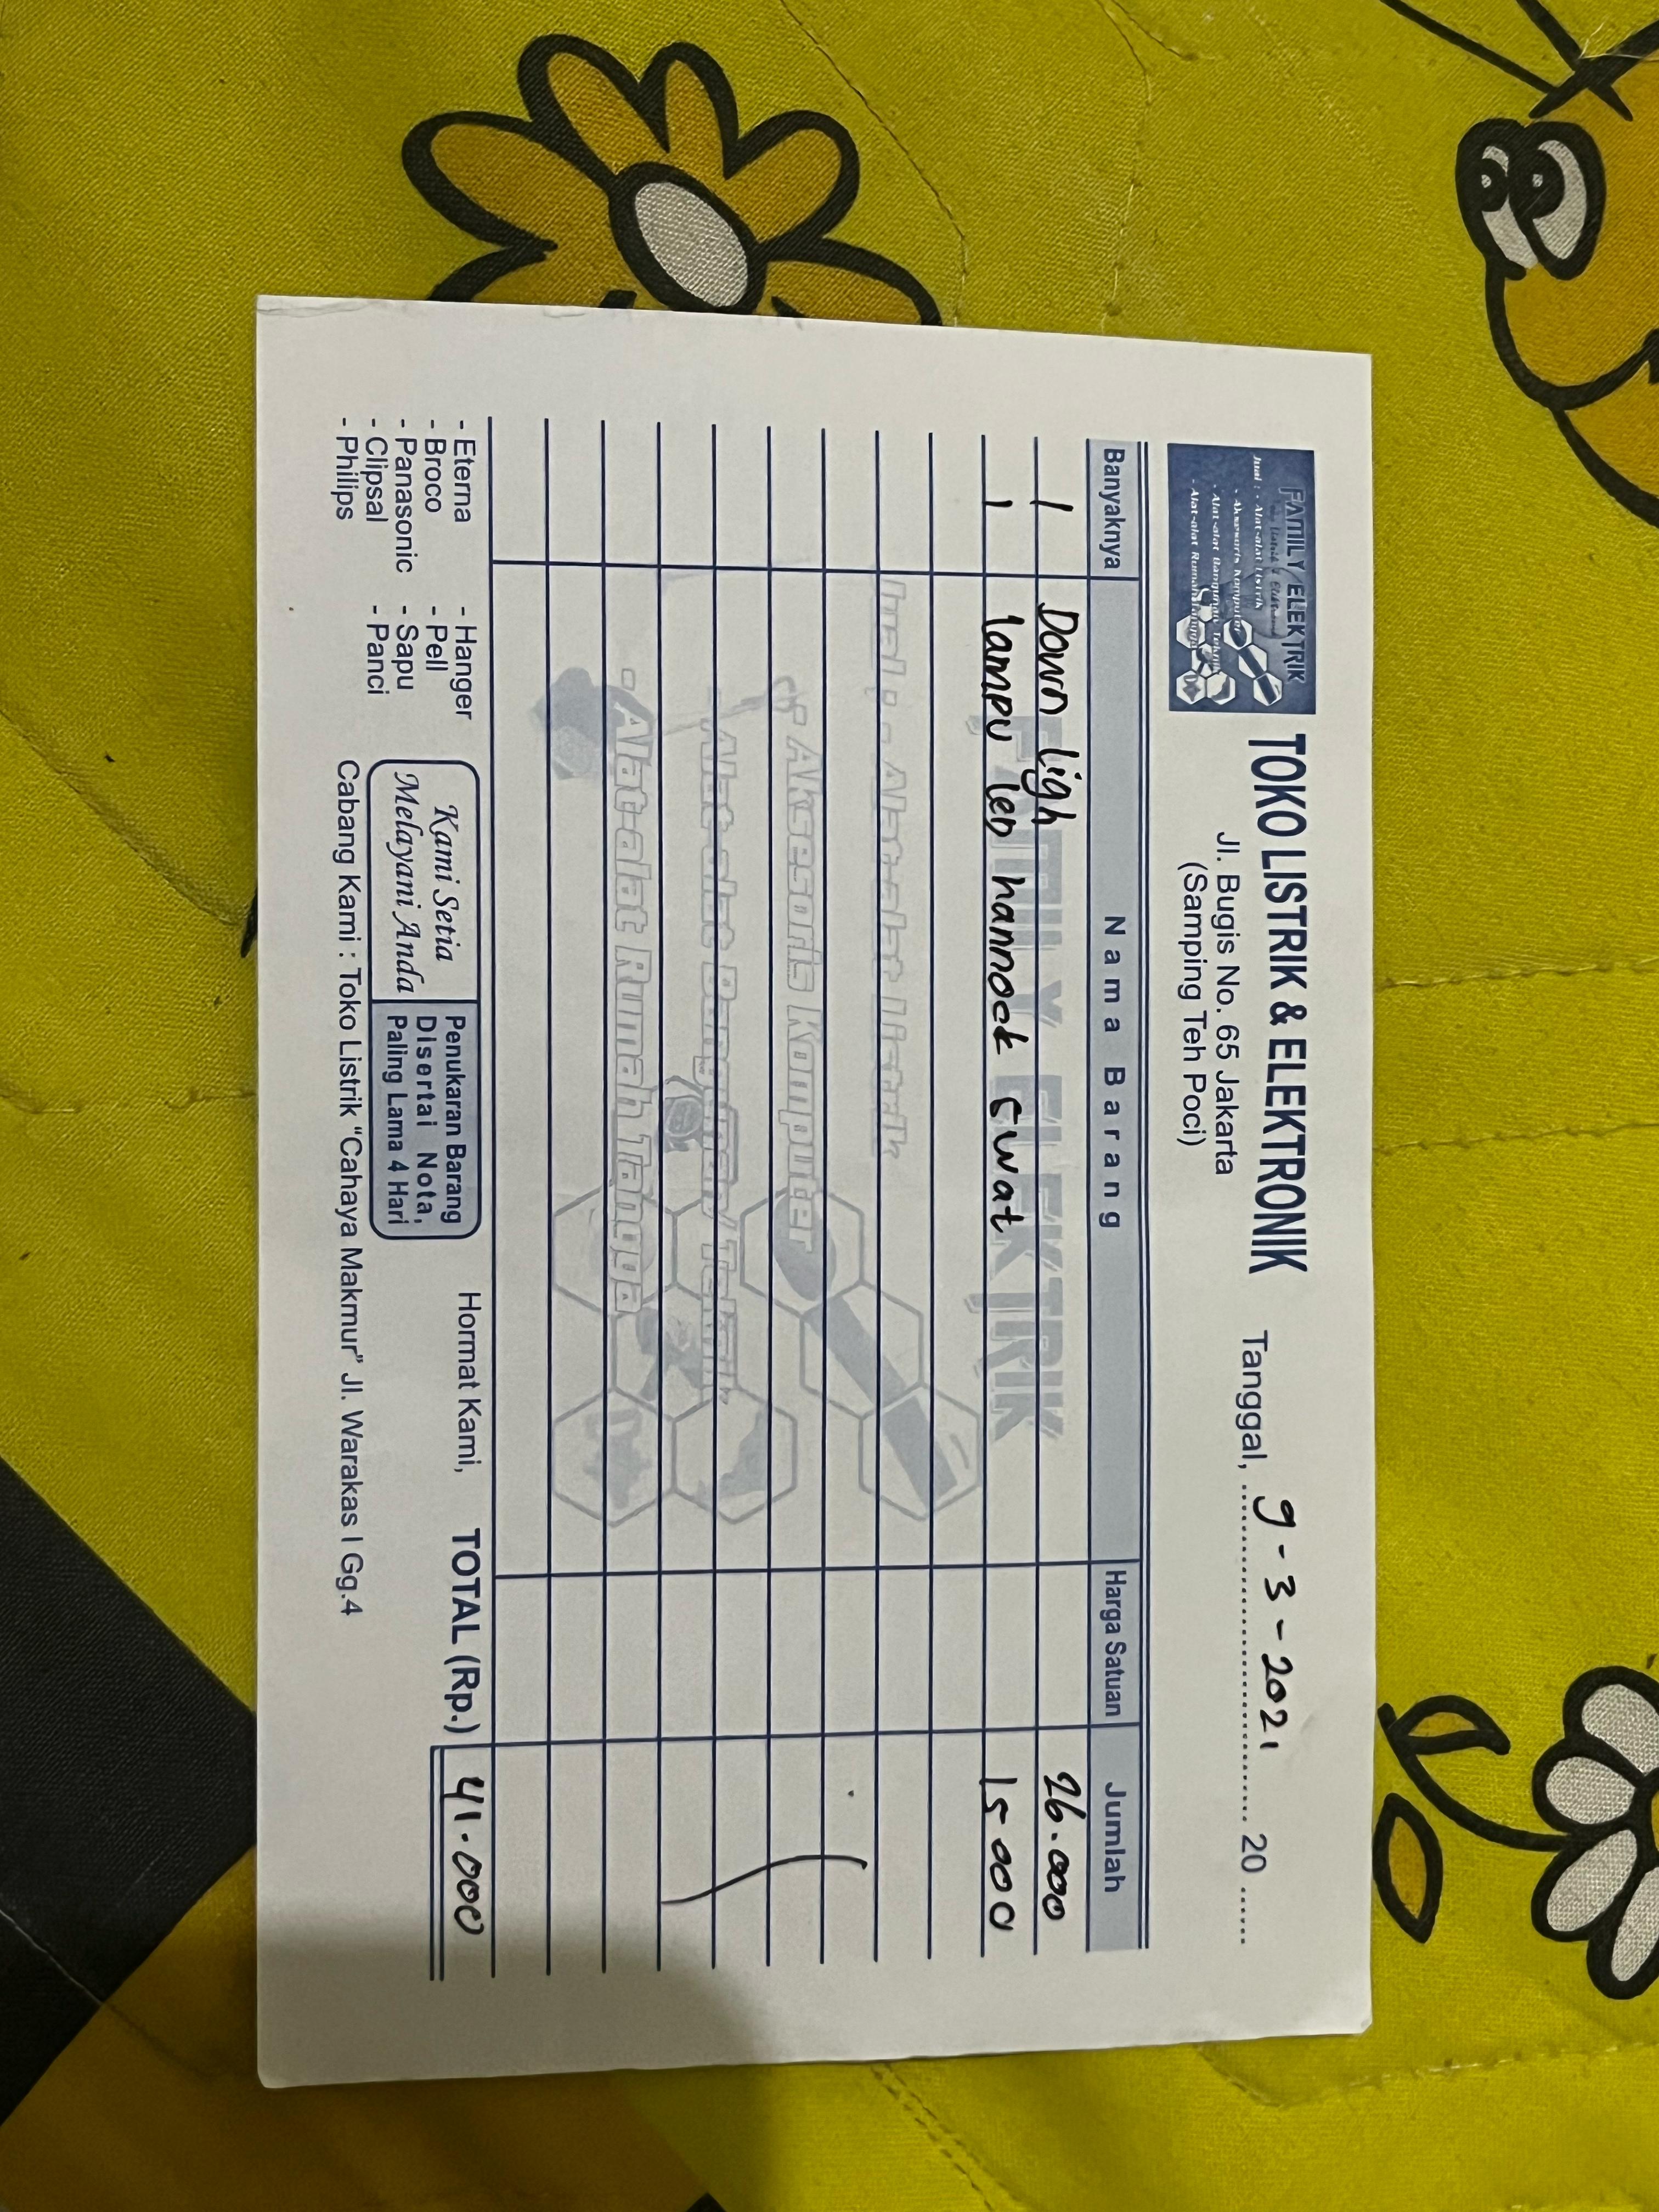 FAMILY ELEKTRIK
Jual : - Alat-alat Listrik
- Aksesoris Komputer
- Alat-alat Bangunan/ Teknik
- Alat-alat Rumah Tangga
TOKO LISTRIK & ELEKTRONIK
Jl. Bugis No. 65 Jakarta
(Samping Teh Poci)
Tanggal, 9 - 3 - 2021 20
Banyaknya Nama Barang Harga Satuan Jumlah
1 Down Ligh 26.000
1 lampu led hannock 5 wat 15.000
FAMILY ELEKTRIK
Jual : - Alat-alat listrik
- Aksesoris Komputer
- Alat-alat Bangunan/ Teknik
- Alat-alat Rumah Tangga
- Eterna
- Broco
- Panasonic
- Clipsal
- Philips
- Hanger
- Pell
- Sapu
- Panci
Kami Setia
Melayani Anda
Penukaran Barang
Disertai Nota,
Paling Lama 4 Hari
Hormat Kami,
TOTAL (Rp.) 41.000
Cabang Kami : Toko Listrik “Cahaya Makmur” Jl. Warakas I Gg.4